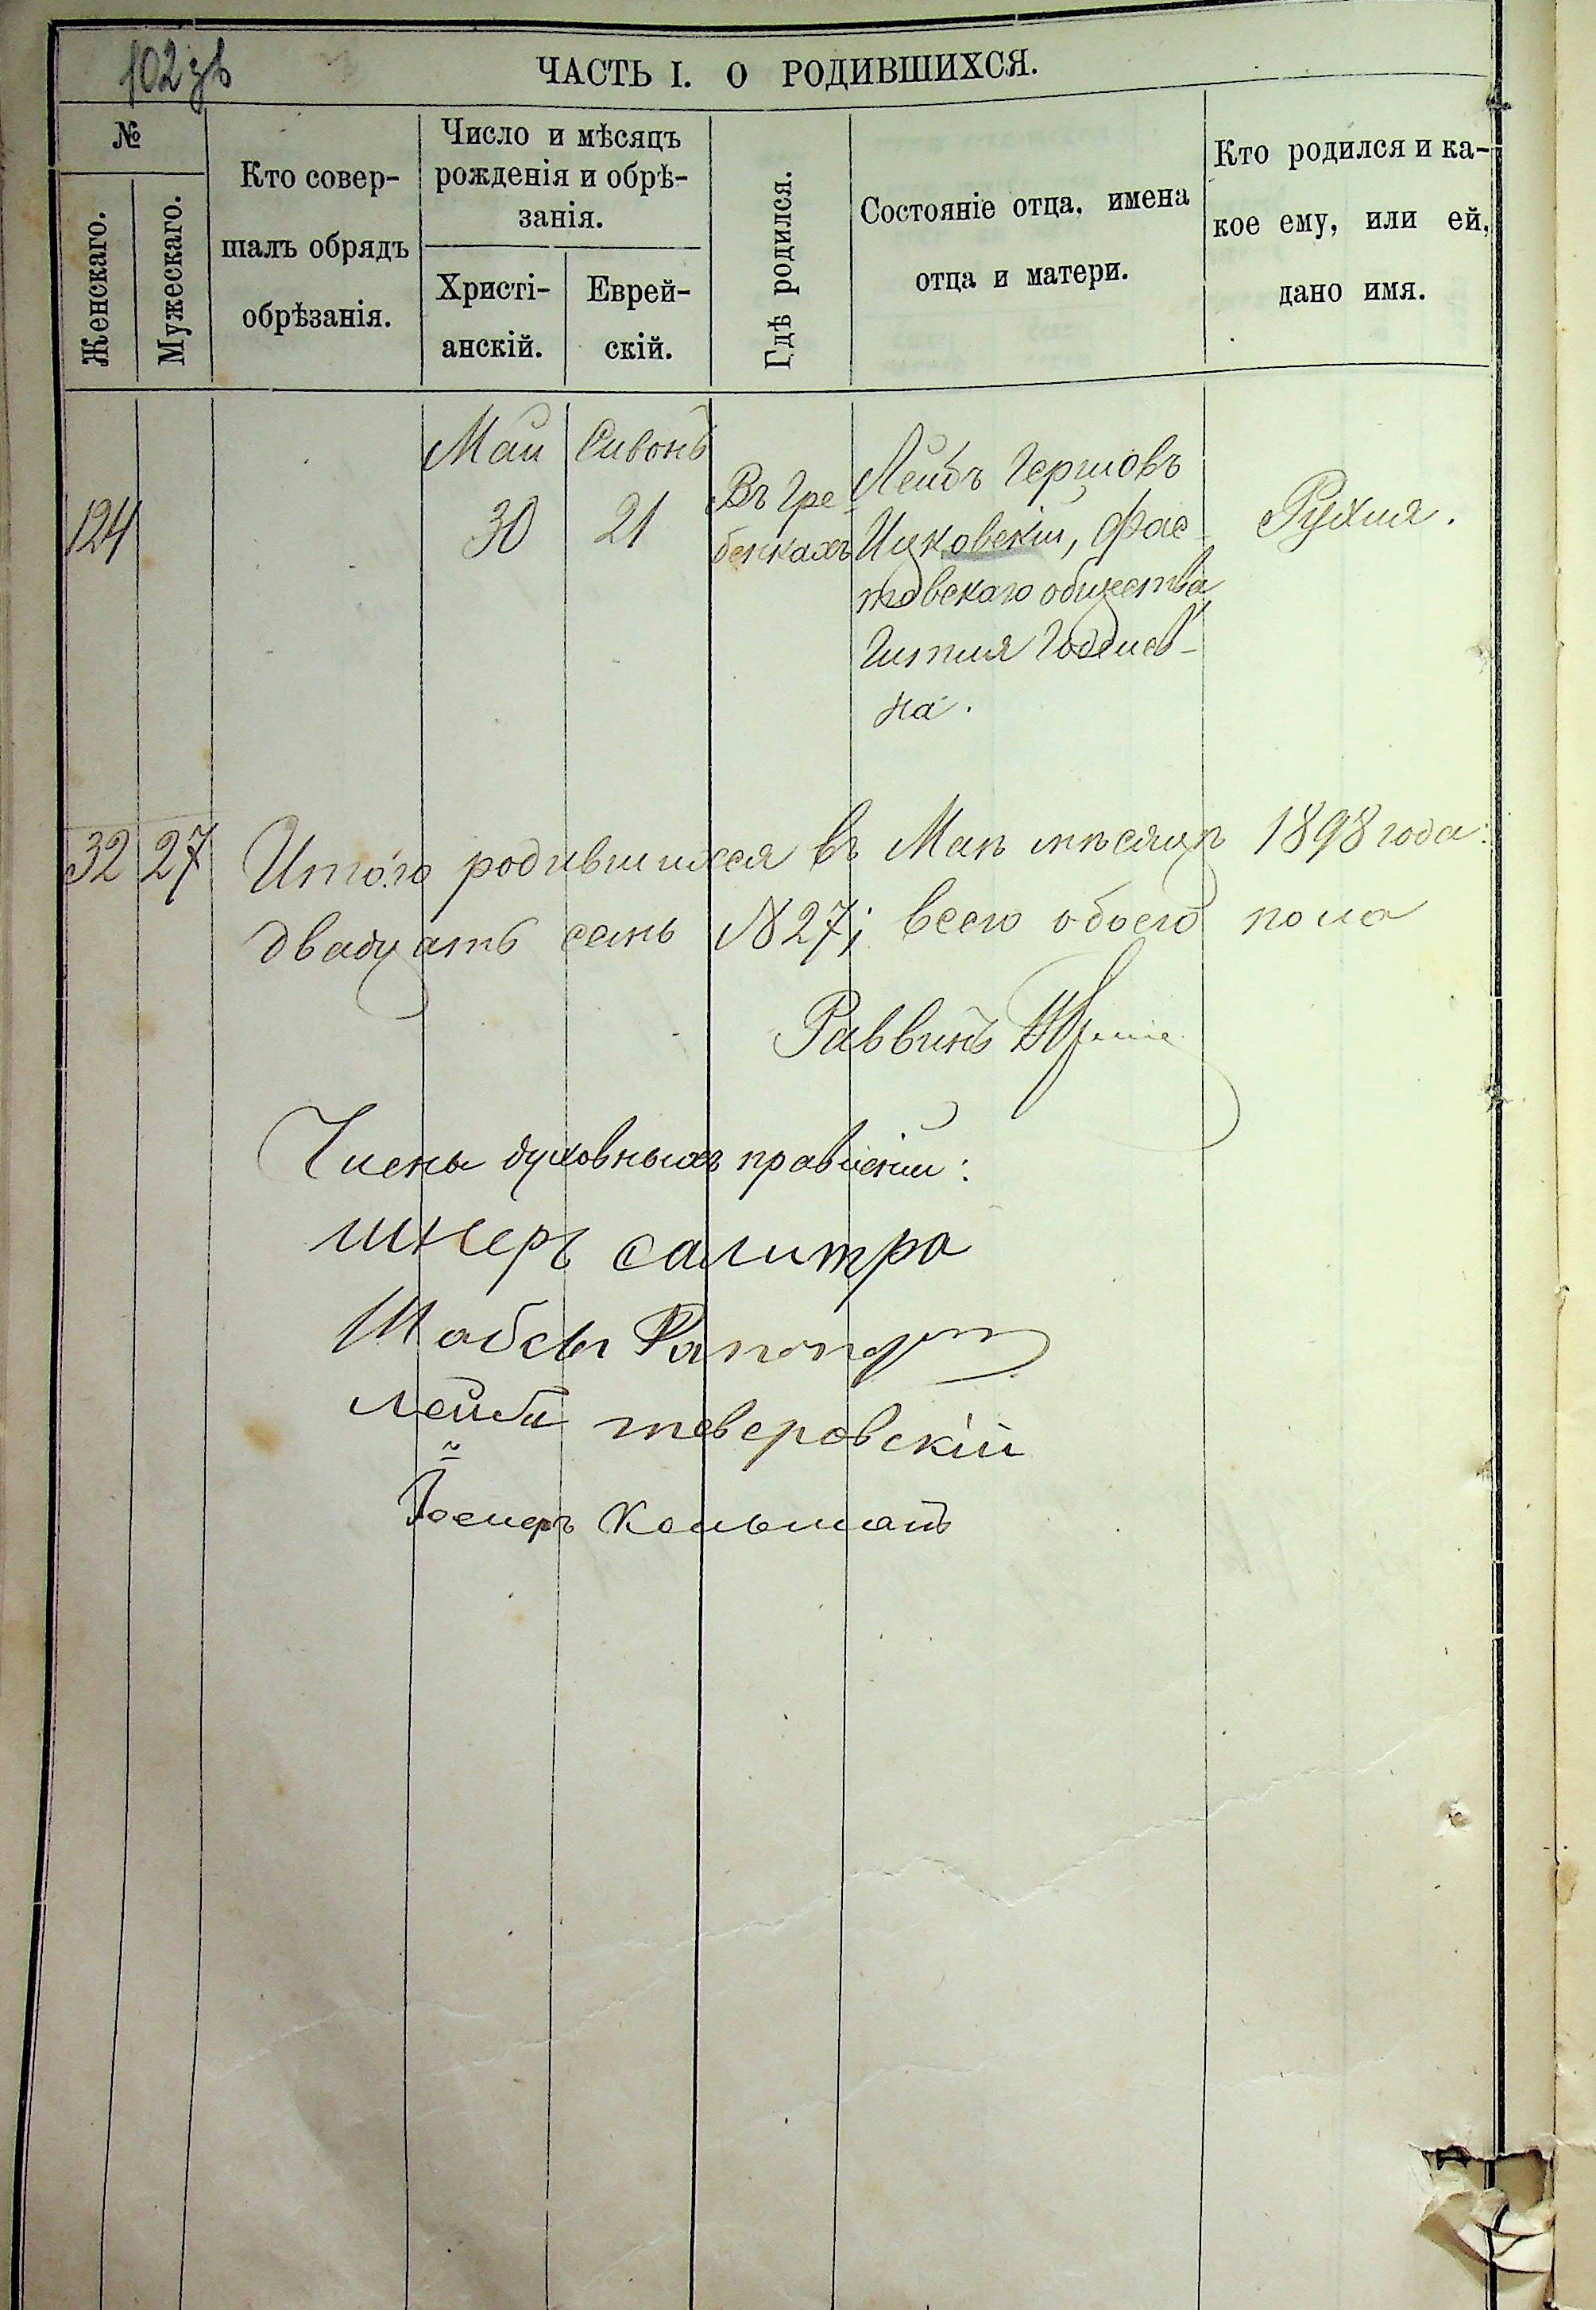 102 зв
ЧАСТЬ I. О РОДИВШИХСЯ.
№
Женскаго.
Мужескаго.
Кто совер-
шалъ обрядъ
обрѣзанія.
Число и мѣсяцъ
рожденія и обрѣ-
занія.
Христі-
анскій.
Еврей-
скій.
Гдѣ родился.
Состояніе отца, имена
отца и матери.
Кто родился и ка-
кое ему, или ей,
дано имя.
124
Май
30
Сивонъ
21
Въ Гре-
бенкахъ
Лейбъ Гершовъ
Ицковскій, Фас-
товскаго общества,
Гитля
на.
Рухля.
32 27 Итого родившихся въ Маѣ мѣсяцѣ 1898 года:
двадцать семь №27; всего обоего пола
Раввинъ
Члены духовныхъ правленій:
шнеръ салитра
Шабсы Рапопортъ
Лейба тверовскій